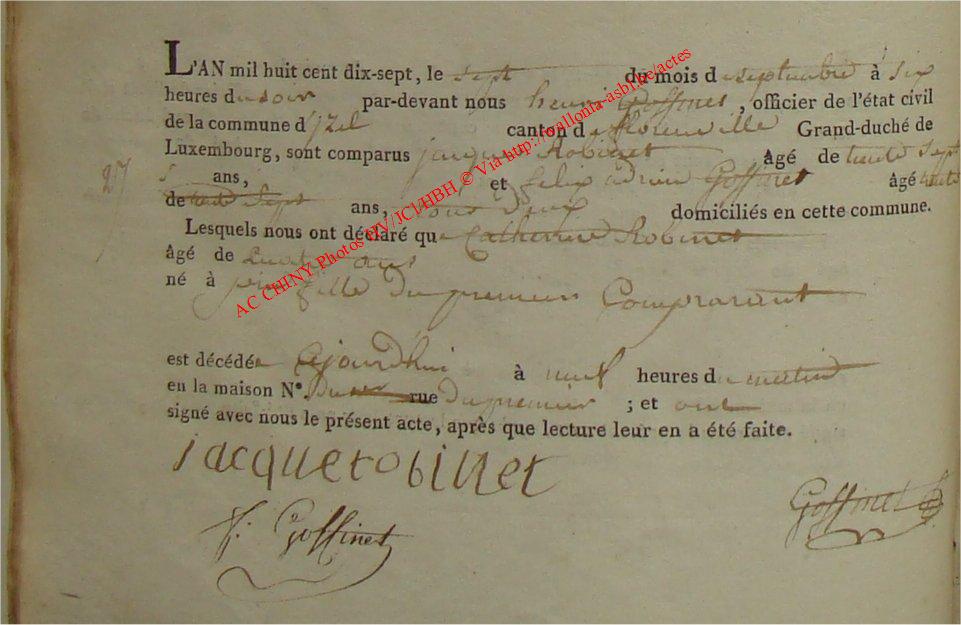 L'AN mil huit cent dix-sept, le sept du mois de septembre à six
heures du soir par-devant nous henri Goffinet, officier de l'état civil
de la commune d'jzel canton de florenville Grand-duché de
Luxembourg, sont comparus jacque Robinet âgé de trente sept
27 ans, et felix adrien Goffinet âgé trente
de sept ans, tous deux domiciliés en cette commune.
Lesquels nous ont déclaré que Catherine Robinet
âgé de ans
né à fille du premier Comparant
est décédée ajourdhui à neuf heures du mattin
en la maison N°. rue du premier ; et ont
signé avec nous le présent acte, après que lecture leur en a été faite.
jacque robinet
f. Goffinet
Goffinet
AC CHINY Photos MV/JCl/HBH © Via http://wallonia-asbl.be/actes